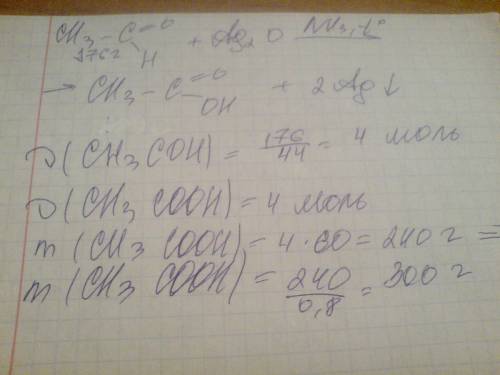 CH₃ - C =O H + Ag₂O NH₃, t°
176г
→ CH₃ - C =O OH + 2 Ag ↓
ν (CH₃ COH) = 176/44 = 4 моль
ν (CH₃ COOH) = 4 моль
m (CH₃ COOH) = 4 · 60 = 240 г =
m (CH₃ COOH) = 240/0,8 = 300 г